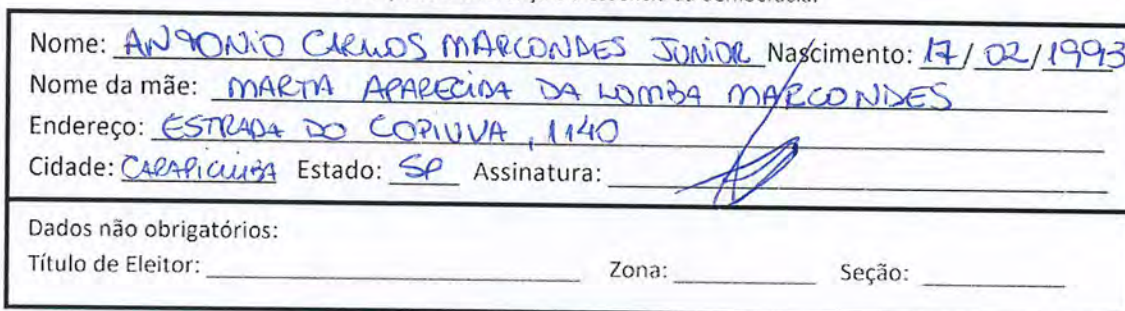 Nome: ANTONIO CARLOS MARCONDES JUNIOR Nascimento: 17/02/1993
Nome da mãe: MARTA APARECIDA DA LOMBA MARCONDES
Endereço: ESTRADA DO COPIUVA, 1140
Cidade: CARAPICUIBA Estado: SP Assinatura:
Dados não obrigatórios:
Título de Eleitor: Zona: Seção: